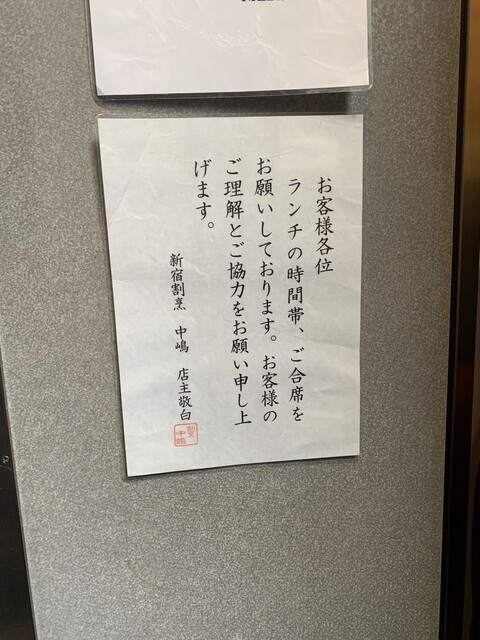 お客様各位
ランチの時間帯、ご合席を
お願いしております。お客様の
ご理解とご協力をお願い申し上
げます。
新宿割烹 中嶋 店主敬白